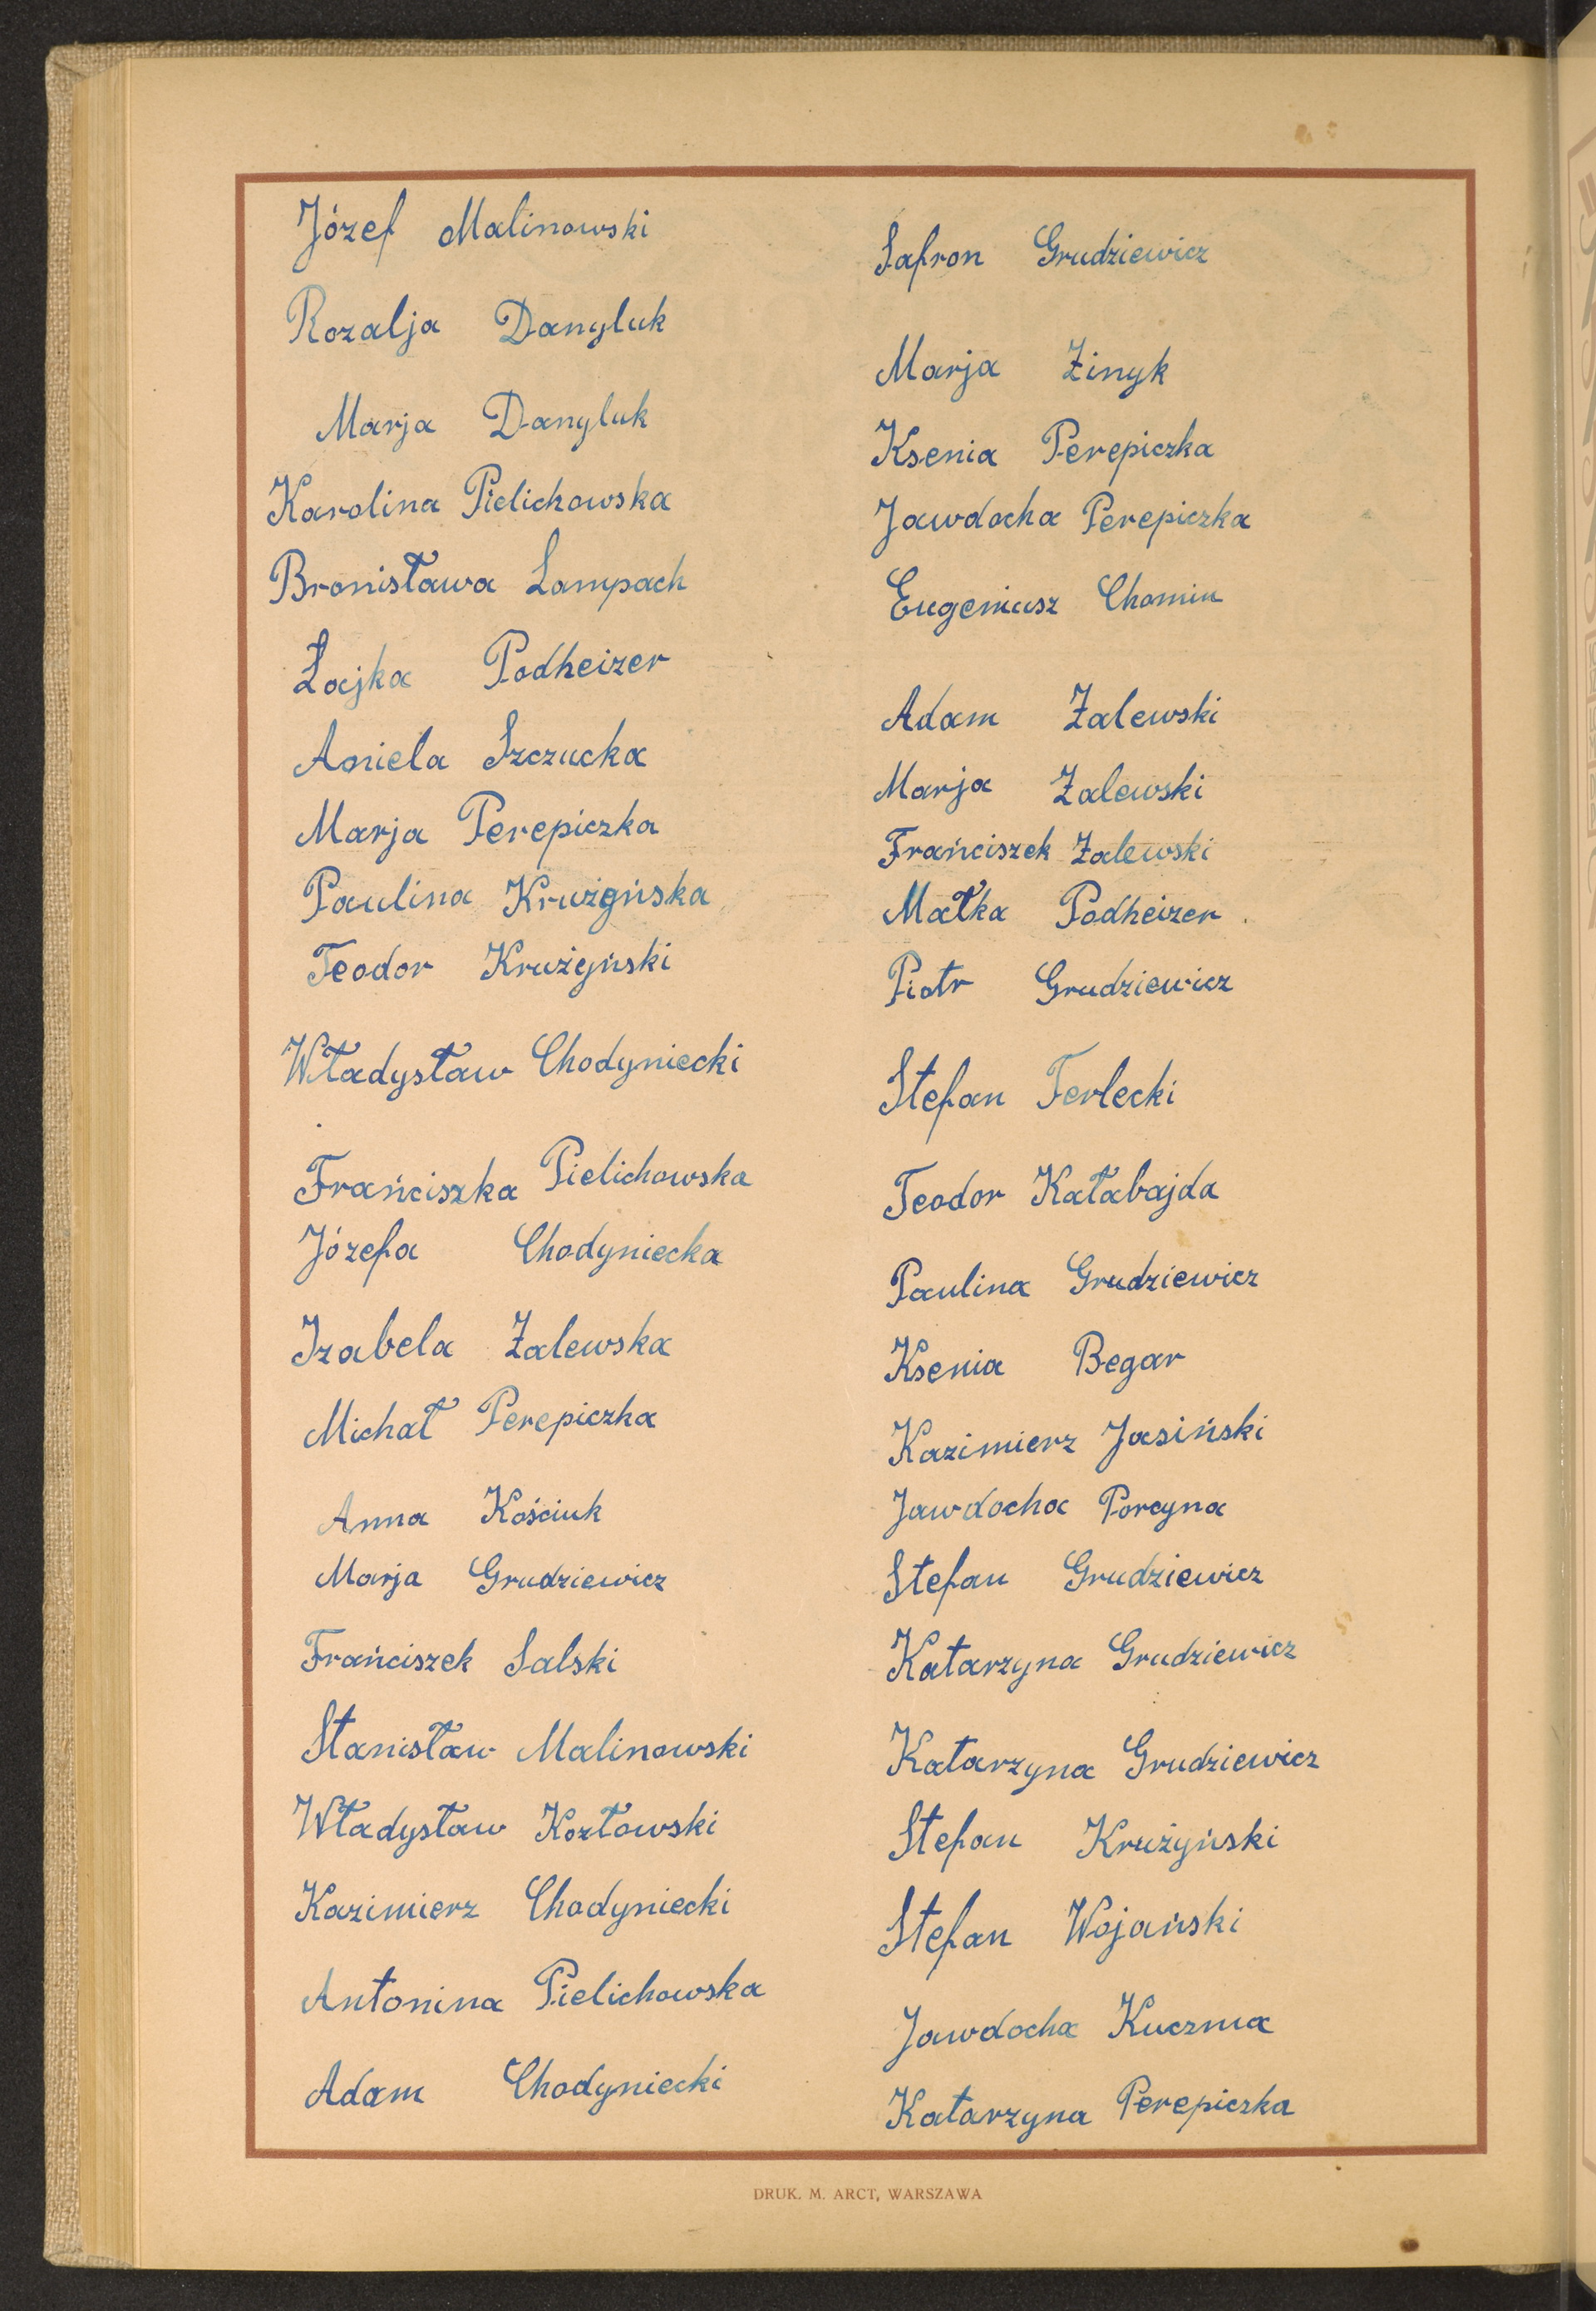 Józef Malinowski
Rozalja Danyluk
Marja Danyluk
Karolina Pielichowska
Bronisława Lampach
Łajka Podheizer
Aniela Szczucka
Marja Perepiczka
Paulina Krużyńska
Teodor Krużyński
Władysław Chodyniecki
Frańciszka Pielichowska
Józefa Chodyniecka
Izabela Zalewska
Michał Perepiczka
Anna Kościuk
Marja Grudziewicz
Frańciszek Salski
Stanisław Malinowski
Władysław Kozłowski
Kazimierz Chodyniecki
Antonina Pielichowska
Adam Chodyniecki
Safron Grudziewicz
Marja Zinyk
Ksenia Perepiczka
Jawdocha Perepiczka
Eugeniusz Chomin
Adam Zalewski
Marja Zalewski
Frańciszek Zalewski
Małka Podheizer
Piotr Grudziewicz
Stefan Terlecki
Teodor Kałabajda
Paulina Grudziewicz
Ksenia Begar
Kazimierz Jasiński
Jawdocha Porcyna
Stefan Grudziewicz
Katarzyna Grudziewicz
Katarzyna Grudziewicz
Stefan Krużyński
Stefan Wojański
Jawdocha Kuczma
Katarzyna Perepiczka
DRUK. M. ARCT, WARSZAWA